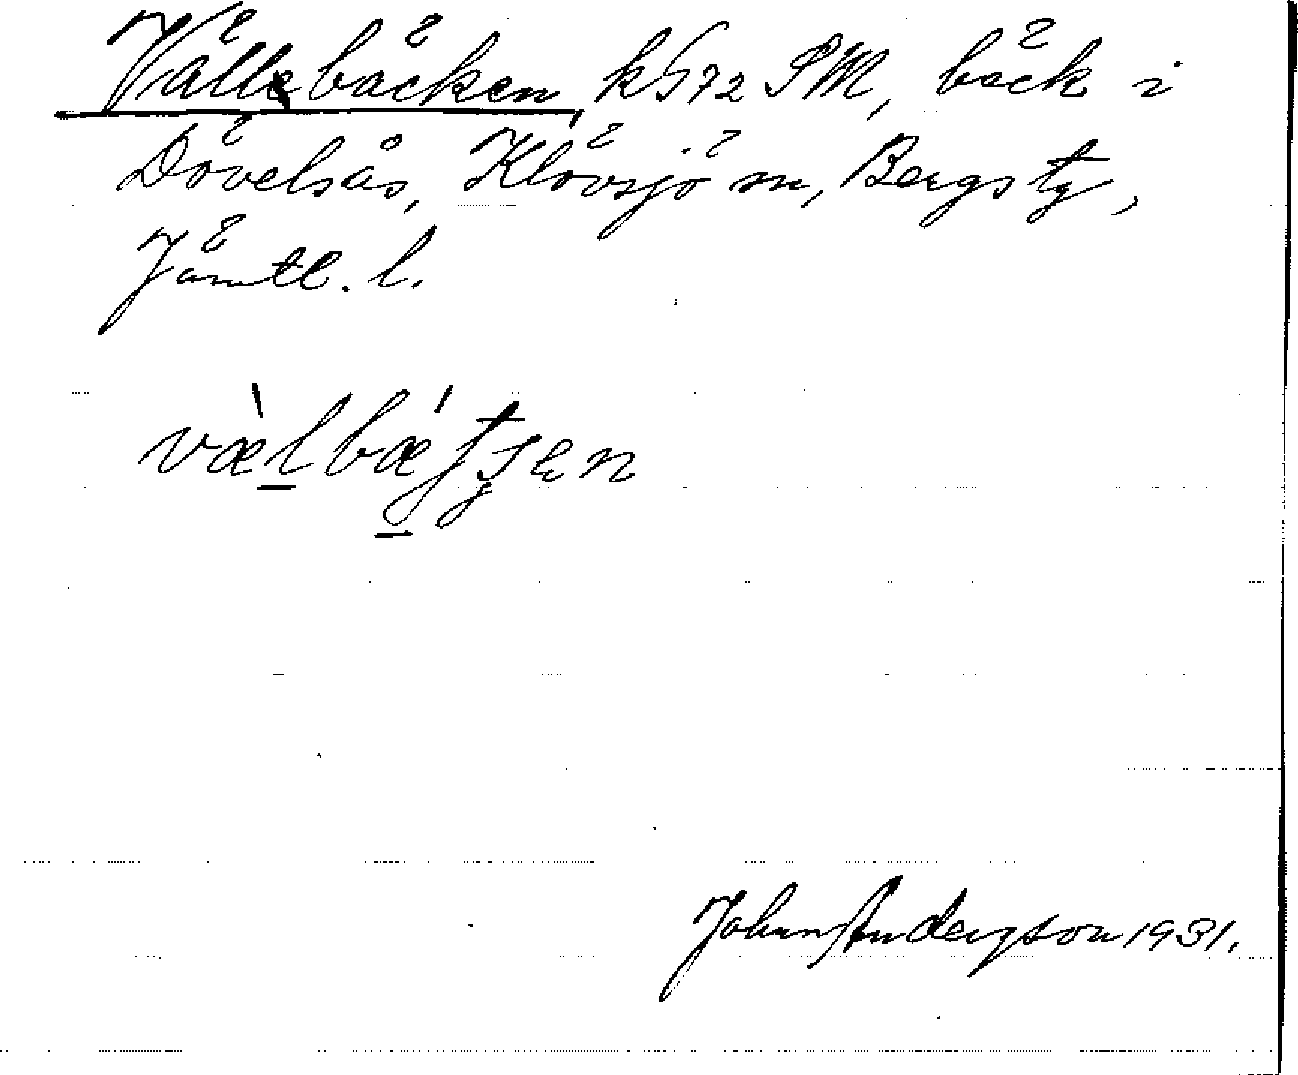 Vällebäcken, k572 SM, bäck i
Dövelsås, Klövsjö sn, Bergs tg,
Jämtl. l.
John Andersson 1931.